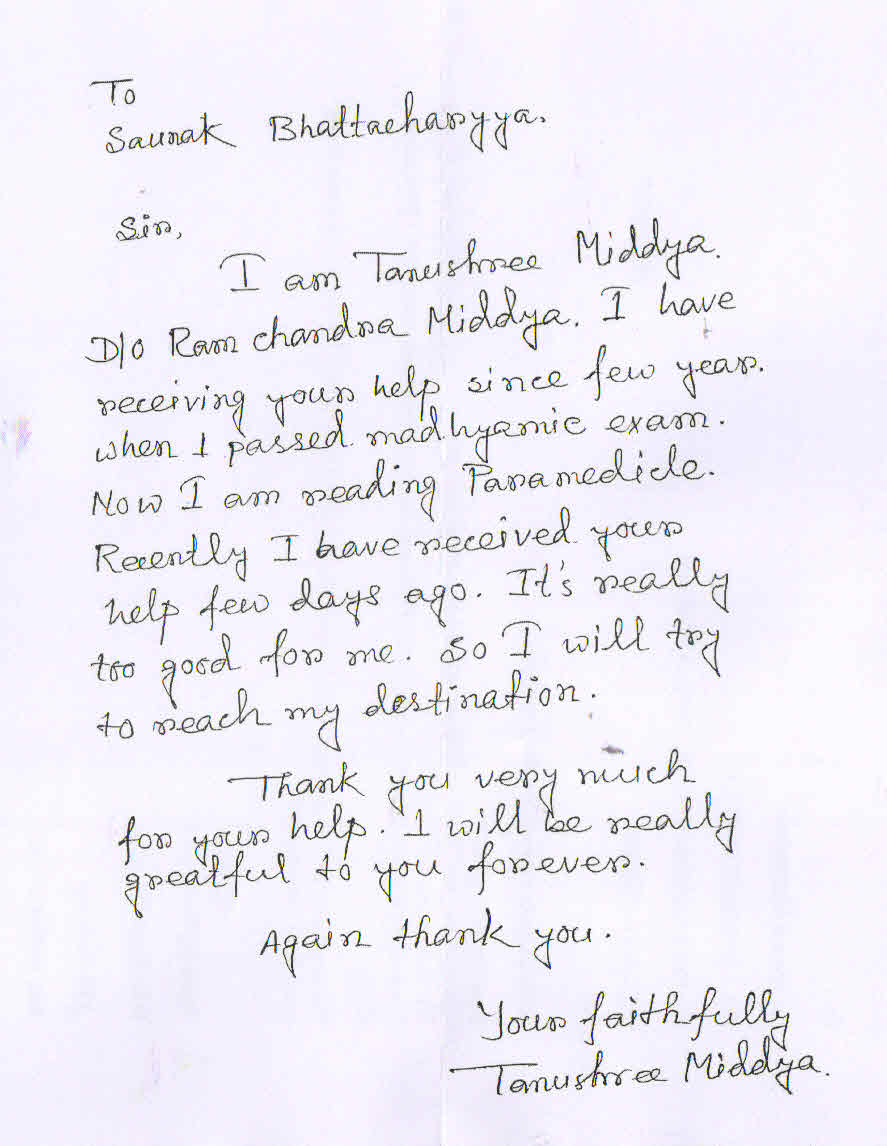 To
Saunak Bhattacharyya.
Sir,
I am Tanushree Middya.
D/o Ram chandra Middya. I have
receiving your help since few year.
when I passed madhyamic exam.
Now I am reading Paramedicle.
Recently I have received your
help few days ago. It's really
too good for me. So I will try
to reach my destination.
Thank you very much
for your help. I will be really
greatful to you forever.
Again thank you.
Your faithfully
Tanushree Middya.